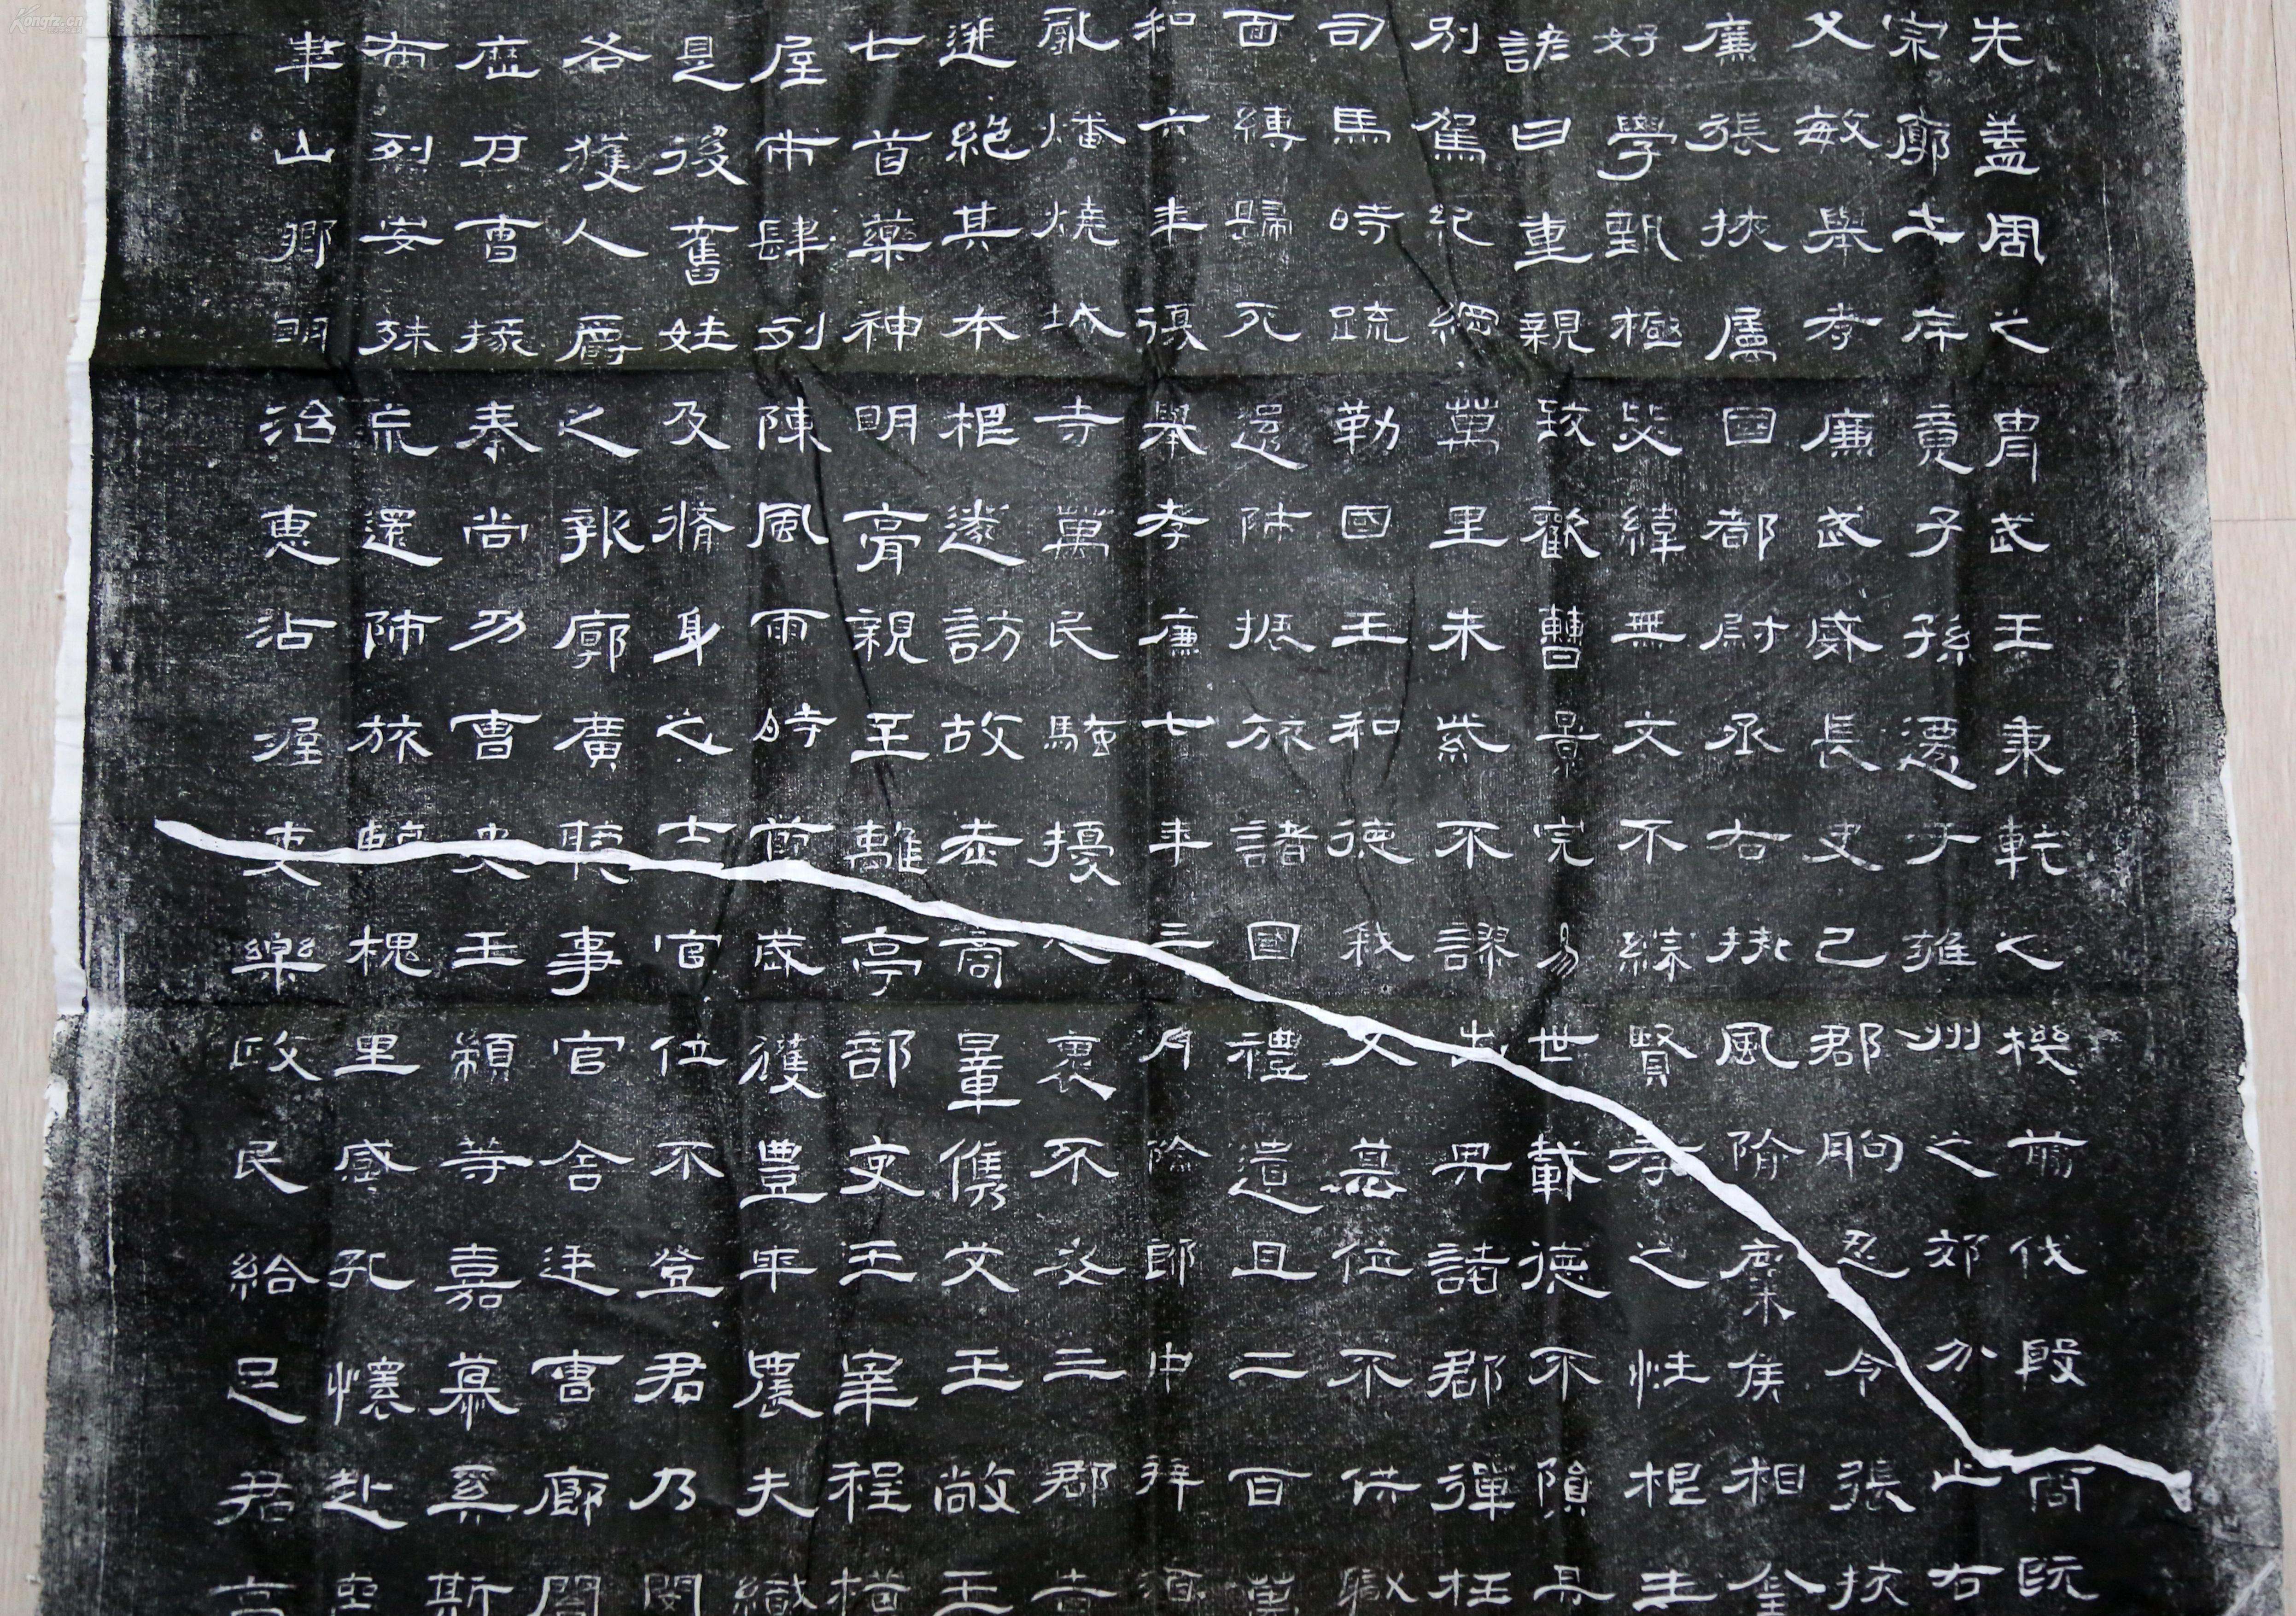 先蓋周之胄武王秉乾之機翦伐殷商既
宗廓土斥竟子孫遷于雍州之郊分止右
父敏舉孝廉武威長史巴郡朐忍令張掖
廉張掖屬國都尉丞右扶風隃麋侯相金
好學甄極毖緯無文不綜賢孝之性根生
諺曰重親致歡曹景完易世載德不隕其
別駕紀綱萬里朱紫不謬出典諸郡彈枉
司馬時疏勒國王和德弒父篡位不供職
面縛歸死還師振旅諸國禮遺且二百萬
和六年復舉孝廉七年三月除郎中拜酒
亂燔燒城寺萬民騷擾人裹不安三郡告
迸絕其本根遂訪故老商量儁艾王敞王
七首藥神明膏親至離亭部吏王宰程橫
屋市肆列陳風雨時節歲獲豐年農夫織
是後舊姓及脩身之士官位不登君乃閔
各獲人爵之報廓廣聽事官舍廷曹廊閣
歷刀曹掾秦尚功曹史王顓等嘉慕奚斯
布列安殊荒還師旅臨槐里感孔懷赴
山鄉明治惠沾渥吏樂政民給足君高